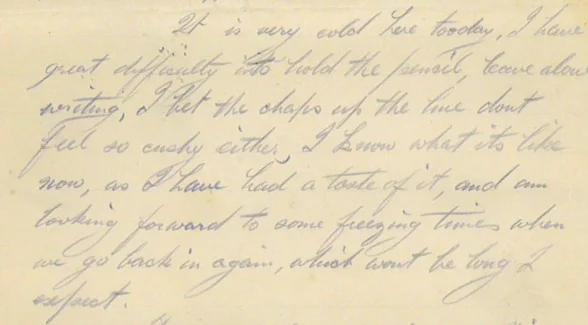 It is very cold here tooday, I have
great difficulty to hold the pencil, leave alone
writing, I bet the chaps up the line dont
feel so cushy either, I know what its like
now, as I have had a taste of it, and am
looking forward to some freezing times when
we go back in again, which wont be long I
expect.